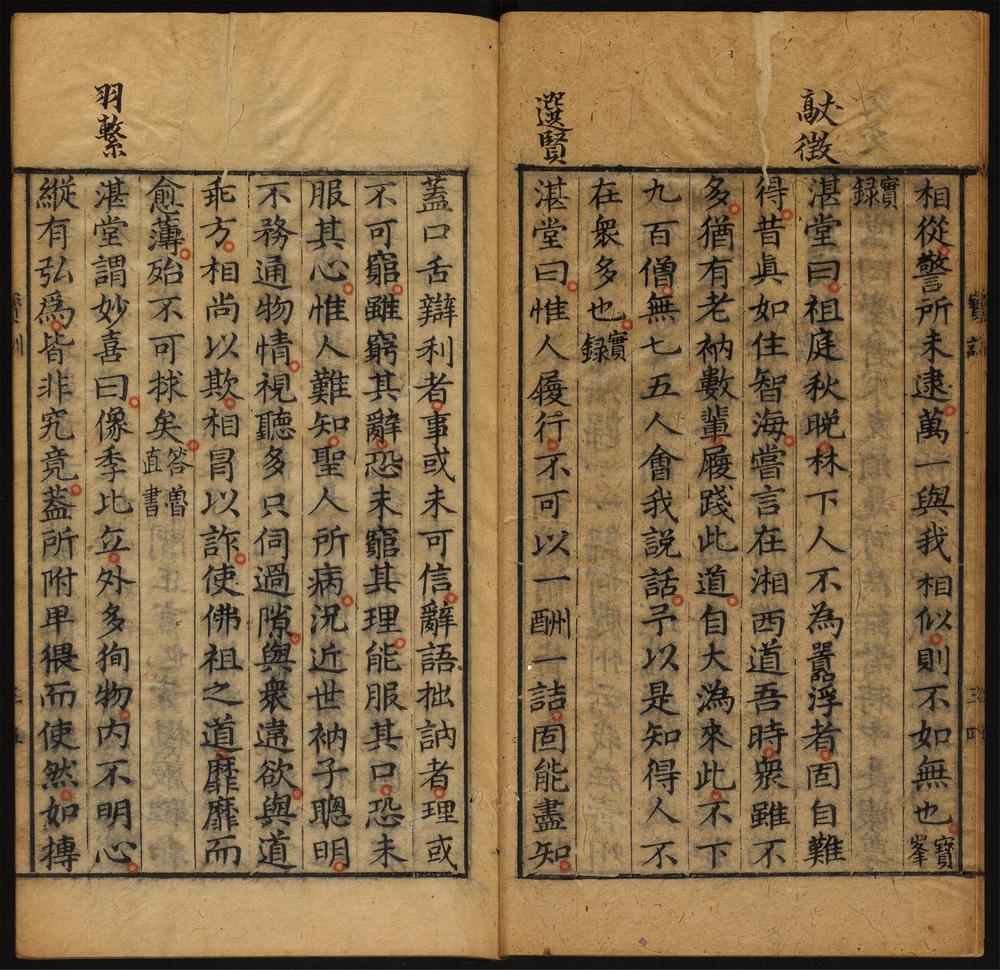 獻徵
選賢
相從警所未逮萬一與我相似則不如無也寶峯
實録
湛堂曰祖庭秋晚林下人不為囂浮者固自難
得昔眞如住智海嘗言在湘西道吾時衆雖不
多猶有老衲數輩履踐此道自大溈來此不下
九百僧無七五人會我説話予以是知得人不
在衆多也實録
湛堂曰惟人履行不可以一詶一詰固能盡知
羽繫
蓋口舌辯利者事或未可信辭語拙訥者理或
不可窮雖窮其辭恐未窮其理能服其口恐未
服其心惟人難知聖人所病況近世衲子聰明
不務通物情視聽多只伺過隙與衆違欲與道
乖方相尚以欺相冒以詐使佛祖之道靡靡而
愈薄殆不可捄矣答魯直書
湛堂謂妙喜曰像季比丘外多狥物内不明心
縱有弘為皆非究竟葢所附卑猥而使然如摶